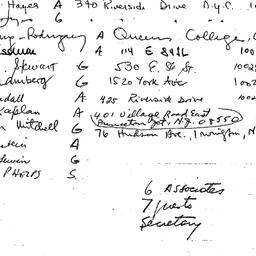 Hayes A 340 Riverside Drive N.Y.C. 10
Rodriguez A Queens College,
A 114 E 84th 100
Stewart G 530 E. 86 St. 1002
Lamberg G 1520 York Ave 1002
dall A 425 Riverside Drive 1002
Kaplan A 401 Village Road East
Princeton Jct, N.J. 08550
Mitchell G 76 Hudson Ave. Irvington, N
stein A
dewin G
PHelps S
6 Associates
7 guests
Secretary